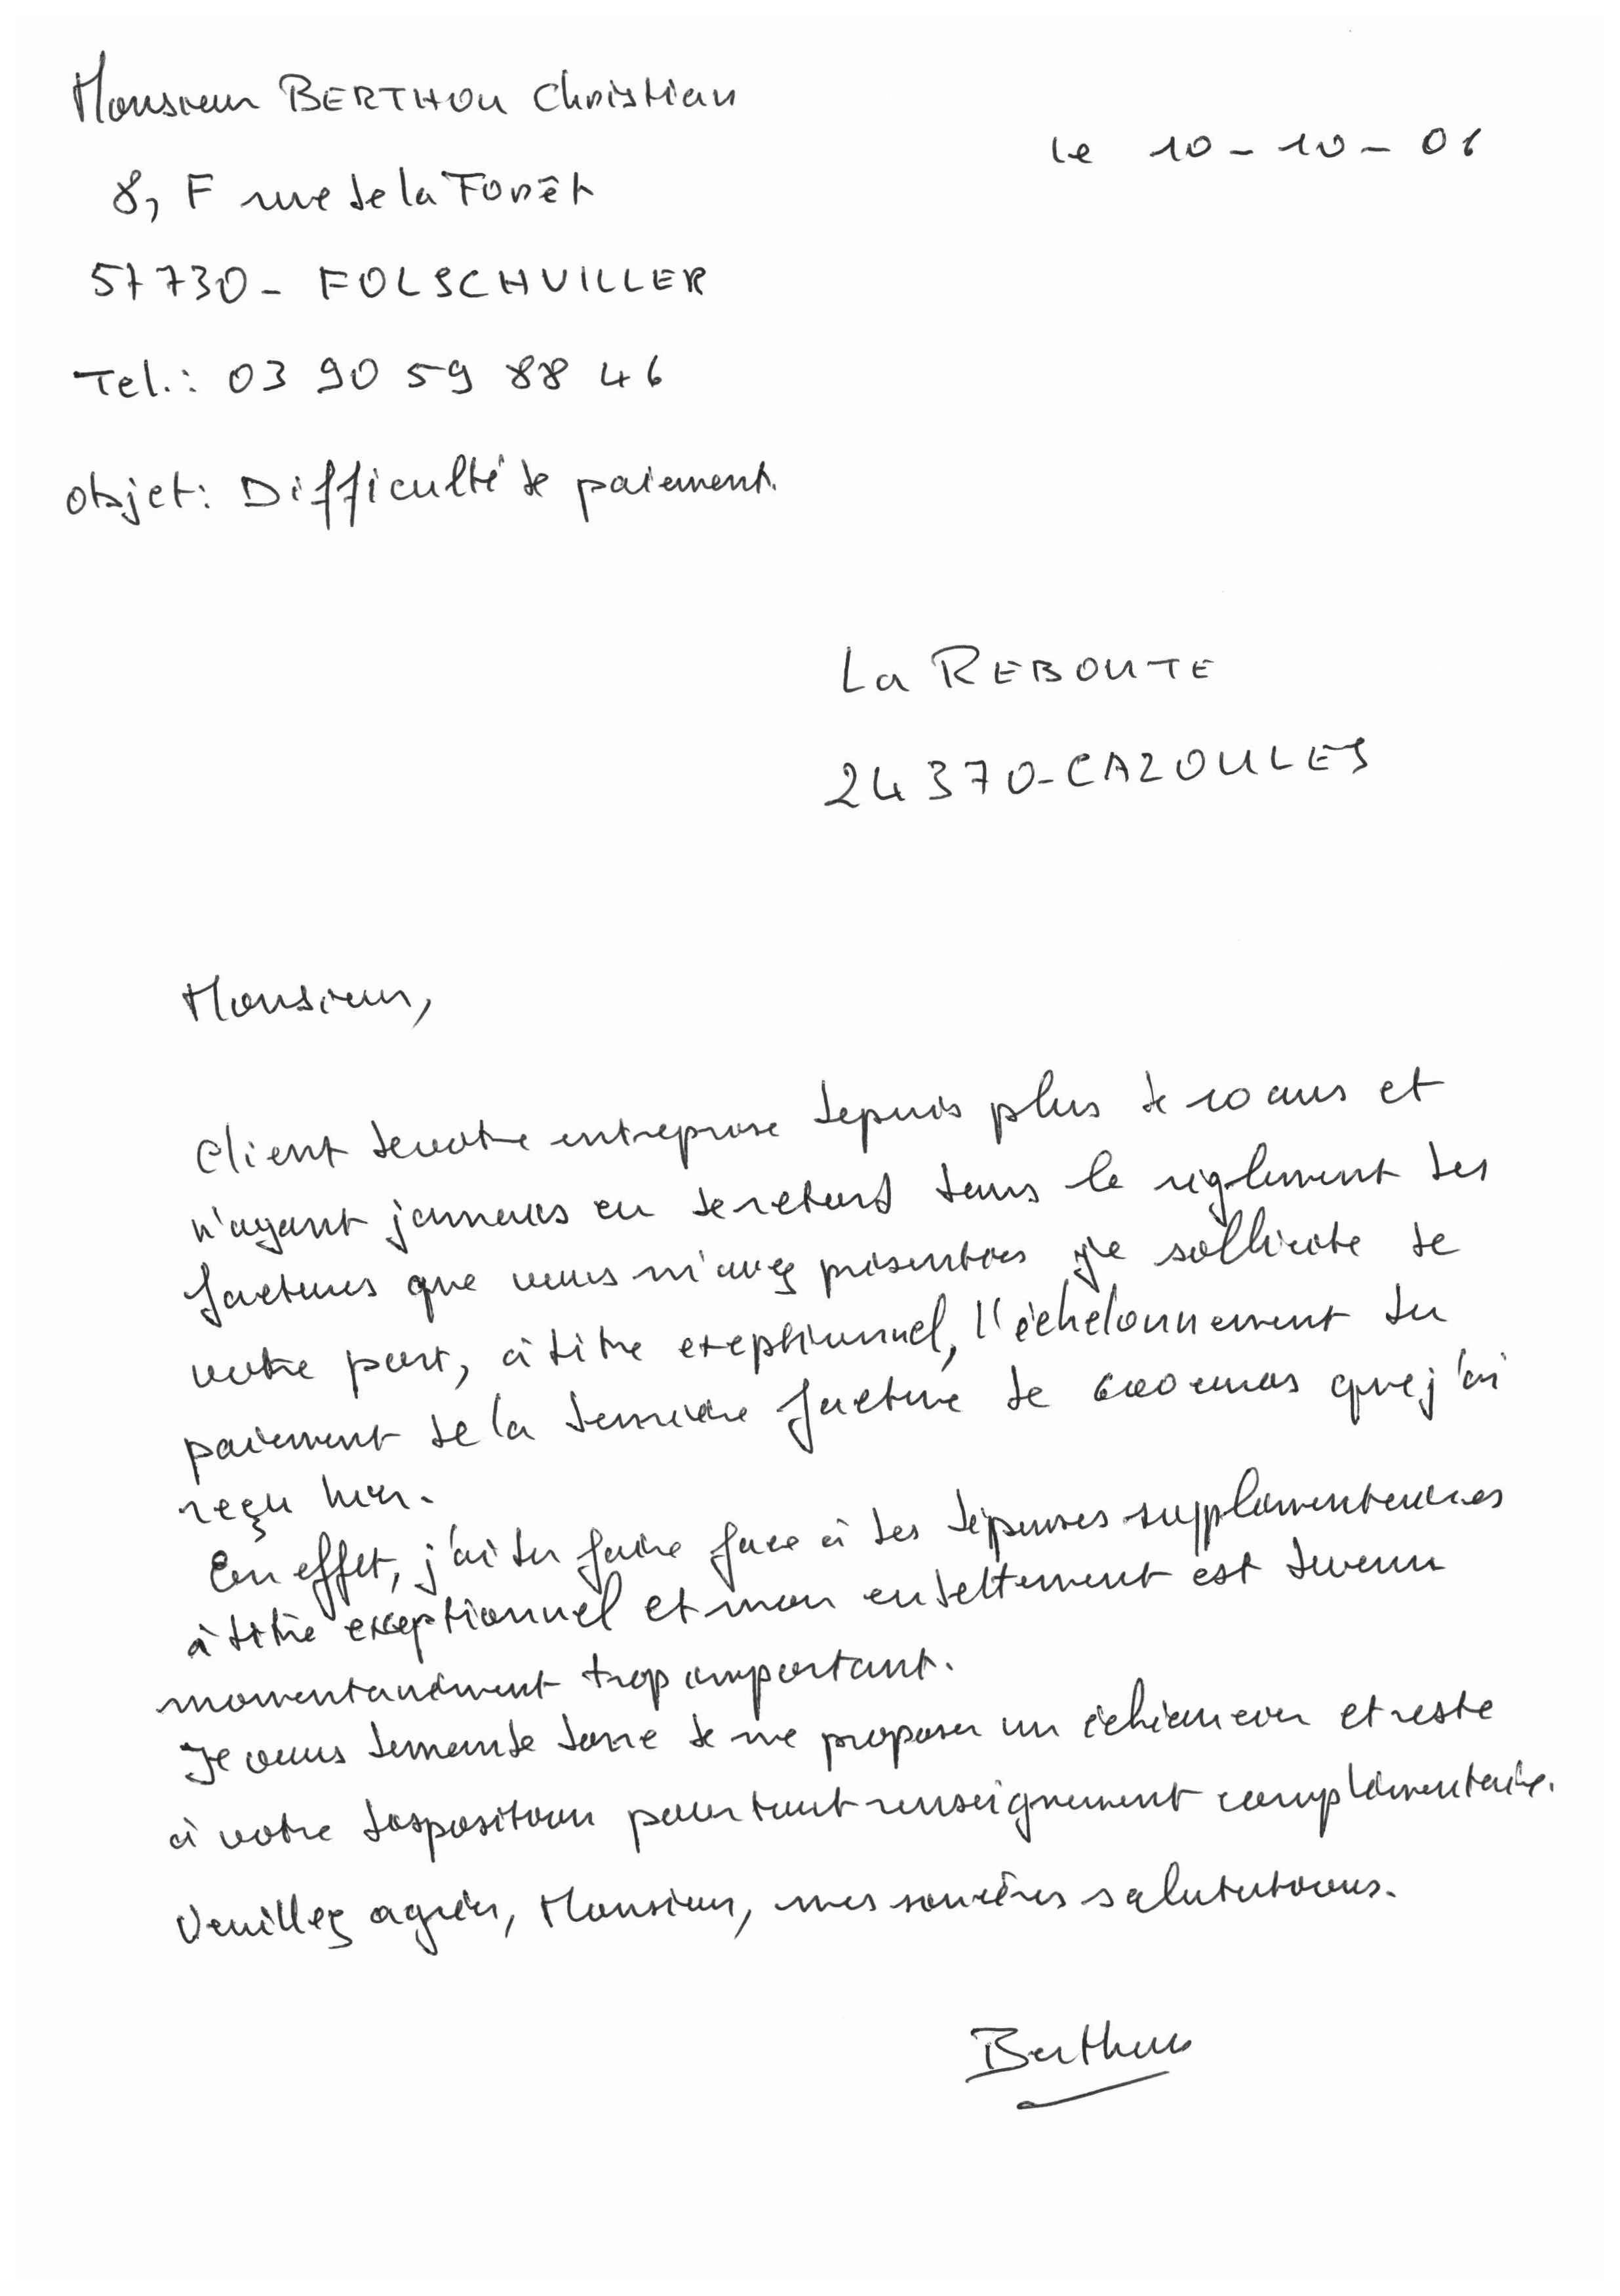 Monsieur BERTHOU Christian
le 10-10-06
8, F rue de la Forêt
57730- FOLSCHVILLER
Tel.: 03 90 59 88 46
objet: Difficulté de paiement.
La REBOUTE
24370-CAZOULES
Monsieur,
Client de votre entreprise depuis plus de 10 ans et
n'ayant jamais eu de retard dans le règlement des
factures que vous m'avez présentées je sollicite de
votre part, à titre exeptionnel, l'échelonnement du
paiement de la dernière facture de 600 euros que j'ai
reçu hier.
En effet, j'ai du faire face à des dépenses supplémentaires
à titre exceptionnel et mon endettement est devenu
momentanément trop important.
Je vous demande donc de me proposer un échéancier et reste
à votre disposition pour tout renseignement complémentaire.
Veuillez agréer, Monsieur, mes sincères salutations.
Berthou